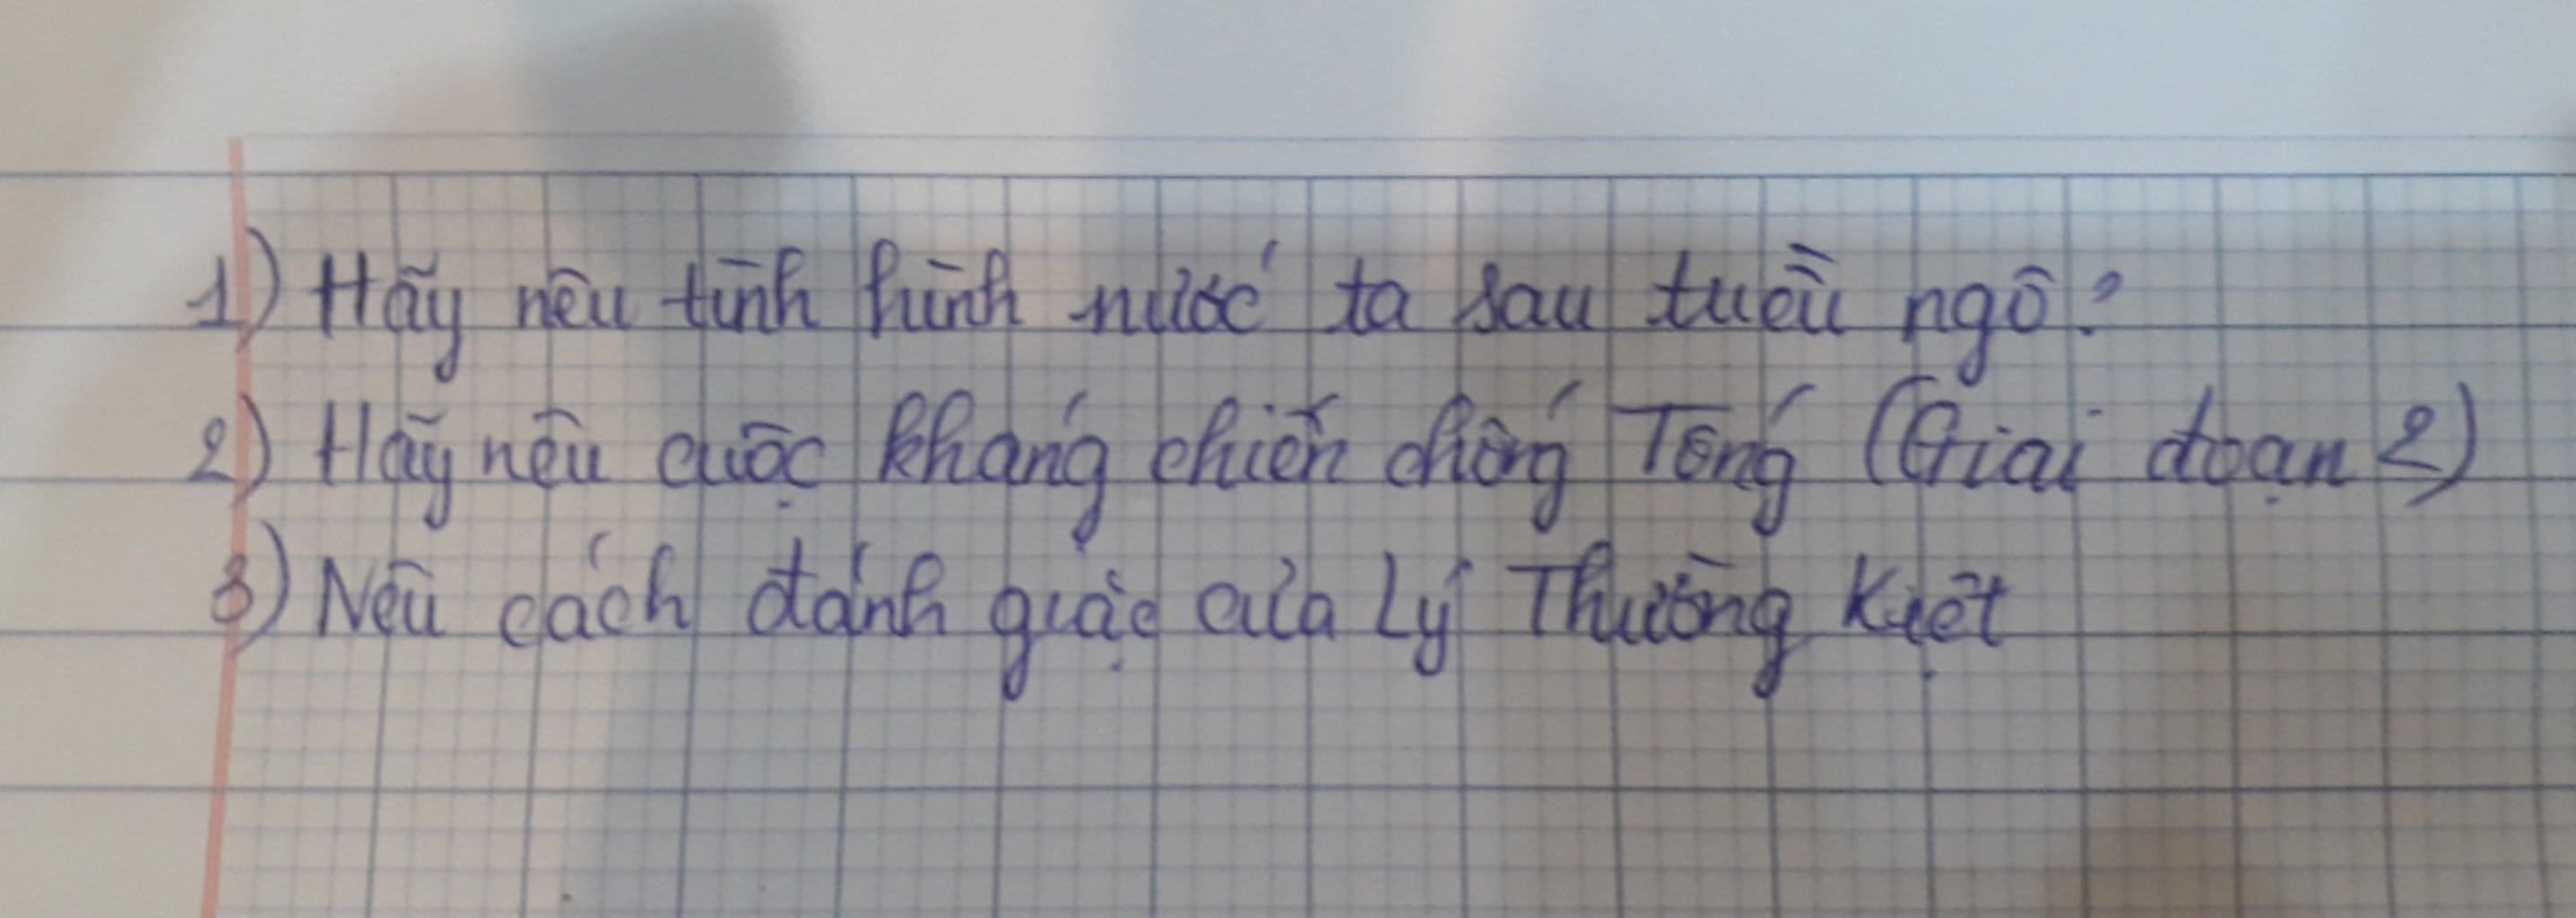 1) Hãy nêu tình hình nước ta sau tuều ngô?
2) Hãy nêu cuộc kháng chiến chống Tống (Giai đoạn 2)
3) Nêu cách đánh giặc của Lý Thường Kiệt